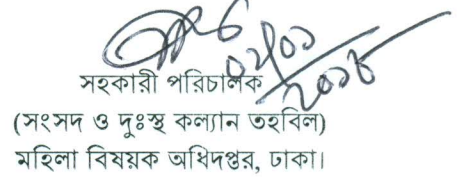 ০২/০১
২০১৮
সহকারী পরিচালক
(সংসদ ও দুঃস্থ কল্যান তহবিল)
মহিলা বিষয়ক অধিদপ্তর, ঢাকা।